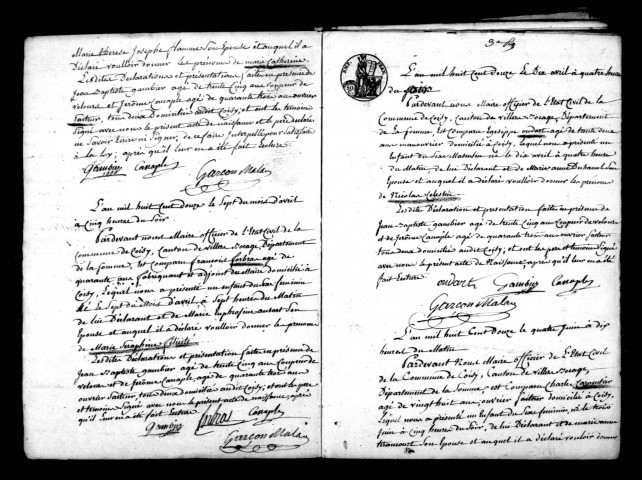 Marie Therese Josephe flamme Son Epouse et auquel il a
Déclaré voulloir donner les prénoms de marie Catherine
Lesdites Déclarations et présentations faites en présence de
Jean Baptiste gambier agé de trente cinq ans coupeur de
velours et Jérôme Canaple agé de quarante trois ans ouvrier
faiteur, tous deux Domicilié audit Coisy, et ont les temoins
Signé avec nous le présent acte de naissance et le pere declaré
ne Savoir Ecrire ni Signer, de ce faire Interpellé pour Satisfaire
à la Loy, après qu'il leur en a été fait lecture
Gambier Canaple
Garçon Malai
L'an mil huit Cent douze le Sept du mois d'avril
à Cinq heures du Soir
Pardevant nous Maire officier de l'Etat Civil de la
Commune de Coisy, Canton de villers Bocage, Département
de la Somme, Est Comparu François Corbras agé de
quarante ans fabriquant et adjoint du Maire domicilié à
Coisy, Lequel nous a présenté un enfant du Sexe féminin
Né le Sept du Mois d'avril, à Sept heures du Matin
de lui Déclarant et de Marie
Epouse et auquel il a déclaré voulloir donner les prenoms
de Marie Seraphine
Lesdites Déclarations et présentation faite en présence de
Jean Baptiste gambier agé de trente Cinq ans Coupeur de
velours et de Jérôme Canaple, agé de quarante trois ans
ouvrier faiteur, tous deux domicilié audit Coisy, et ont le pere
et temoins Signé avec nous le présent acte de naissance, après
qu'il leur en a été fait Lecture
Gambier Corbras Canaple
Garçon Malai
L'an mil huit Cent douze le Dix avril à quatre heures
du Soir
Pardevant nous Maire officier de l'Etat Civil de la
Commune de Coisy, Canton de villers Bocage, Département
de la Somme, Est Comparu oudart agé de trente deux
ans ouvrier domicilié à Coisy, lequel nous a présenté un
Enfant du Sexe Masculin né le dix avril à quatre heures
du Matin, de lui Declarant et de Marie anne Duhamel Son
Epouse et auquel il a déclaré voulloir donner les prenoms
de Nicolas Celestin
Lesdites Déclaration et présentation faite en présence de
Jean Baptiste gambier agé de trente Cinq ans Coupeur de velours
et de Jérôme Canaple agé de quarante trois ans ouvrier faiteur
tous deux domicilié audit Coisy, et ont le pere et temoins Signé
avec nous le présent acte de Naissance, après qu'il leur en a été
fait Lecture
oudart Gambier Canaple
Garçon Malai
L'an mil huit Cent douze le quatre Juin à dix
heures du Matin
Pardevant Nous Maire officier de l'Etat Civil
de la Commune de Coisy, Canton de villers Bocage,
Département de la Somme, est Comparu Charle
agé de vingt huit ans, ouvrier faiteur domicilié à Coisy,
Lequel nous a présenté un Enfant du Sexe féminin, né le trois
Juin à Cinq heures du Soir, de lui Déclarant et de marie anne
Son Epouse et auquel il a déclaré voulloir donner